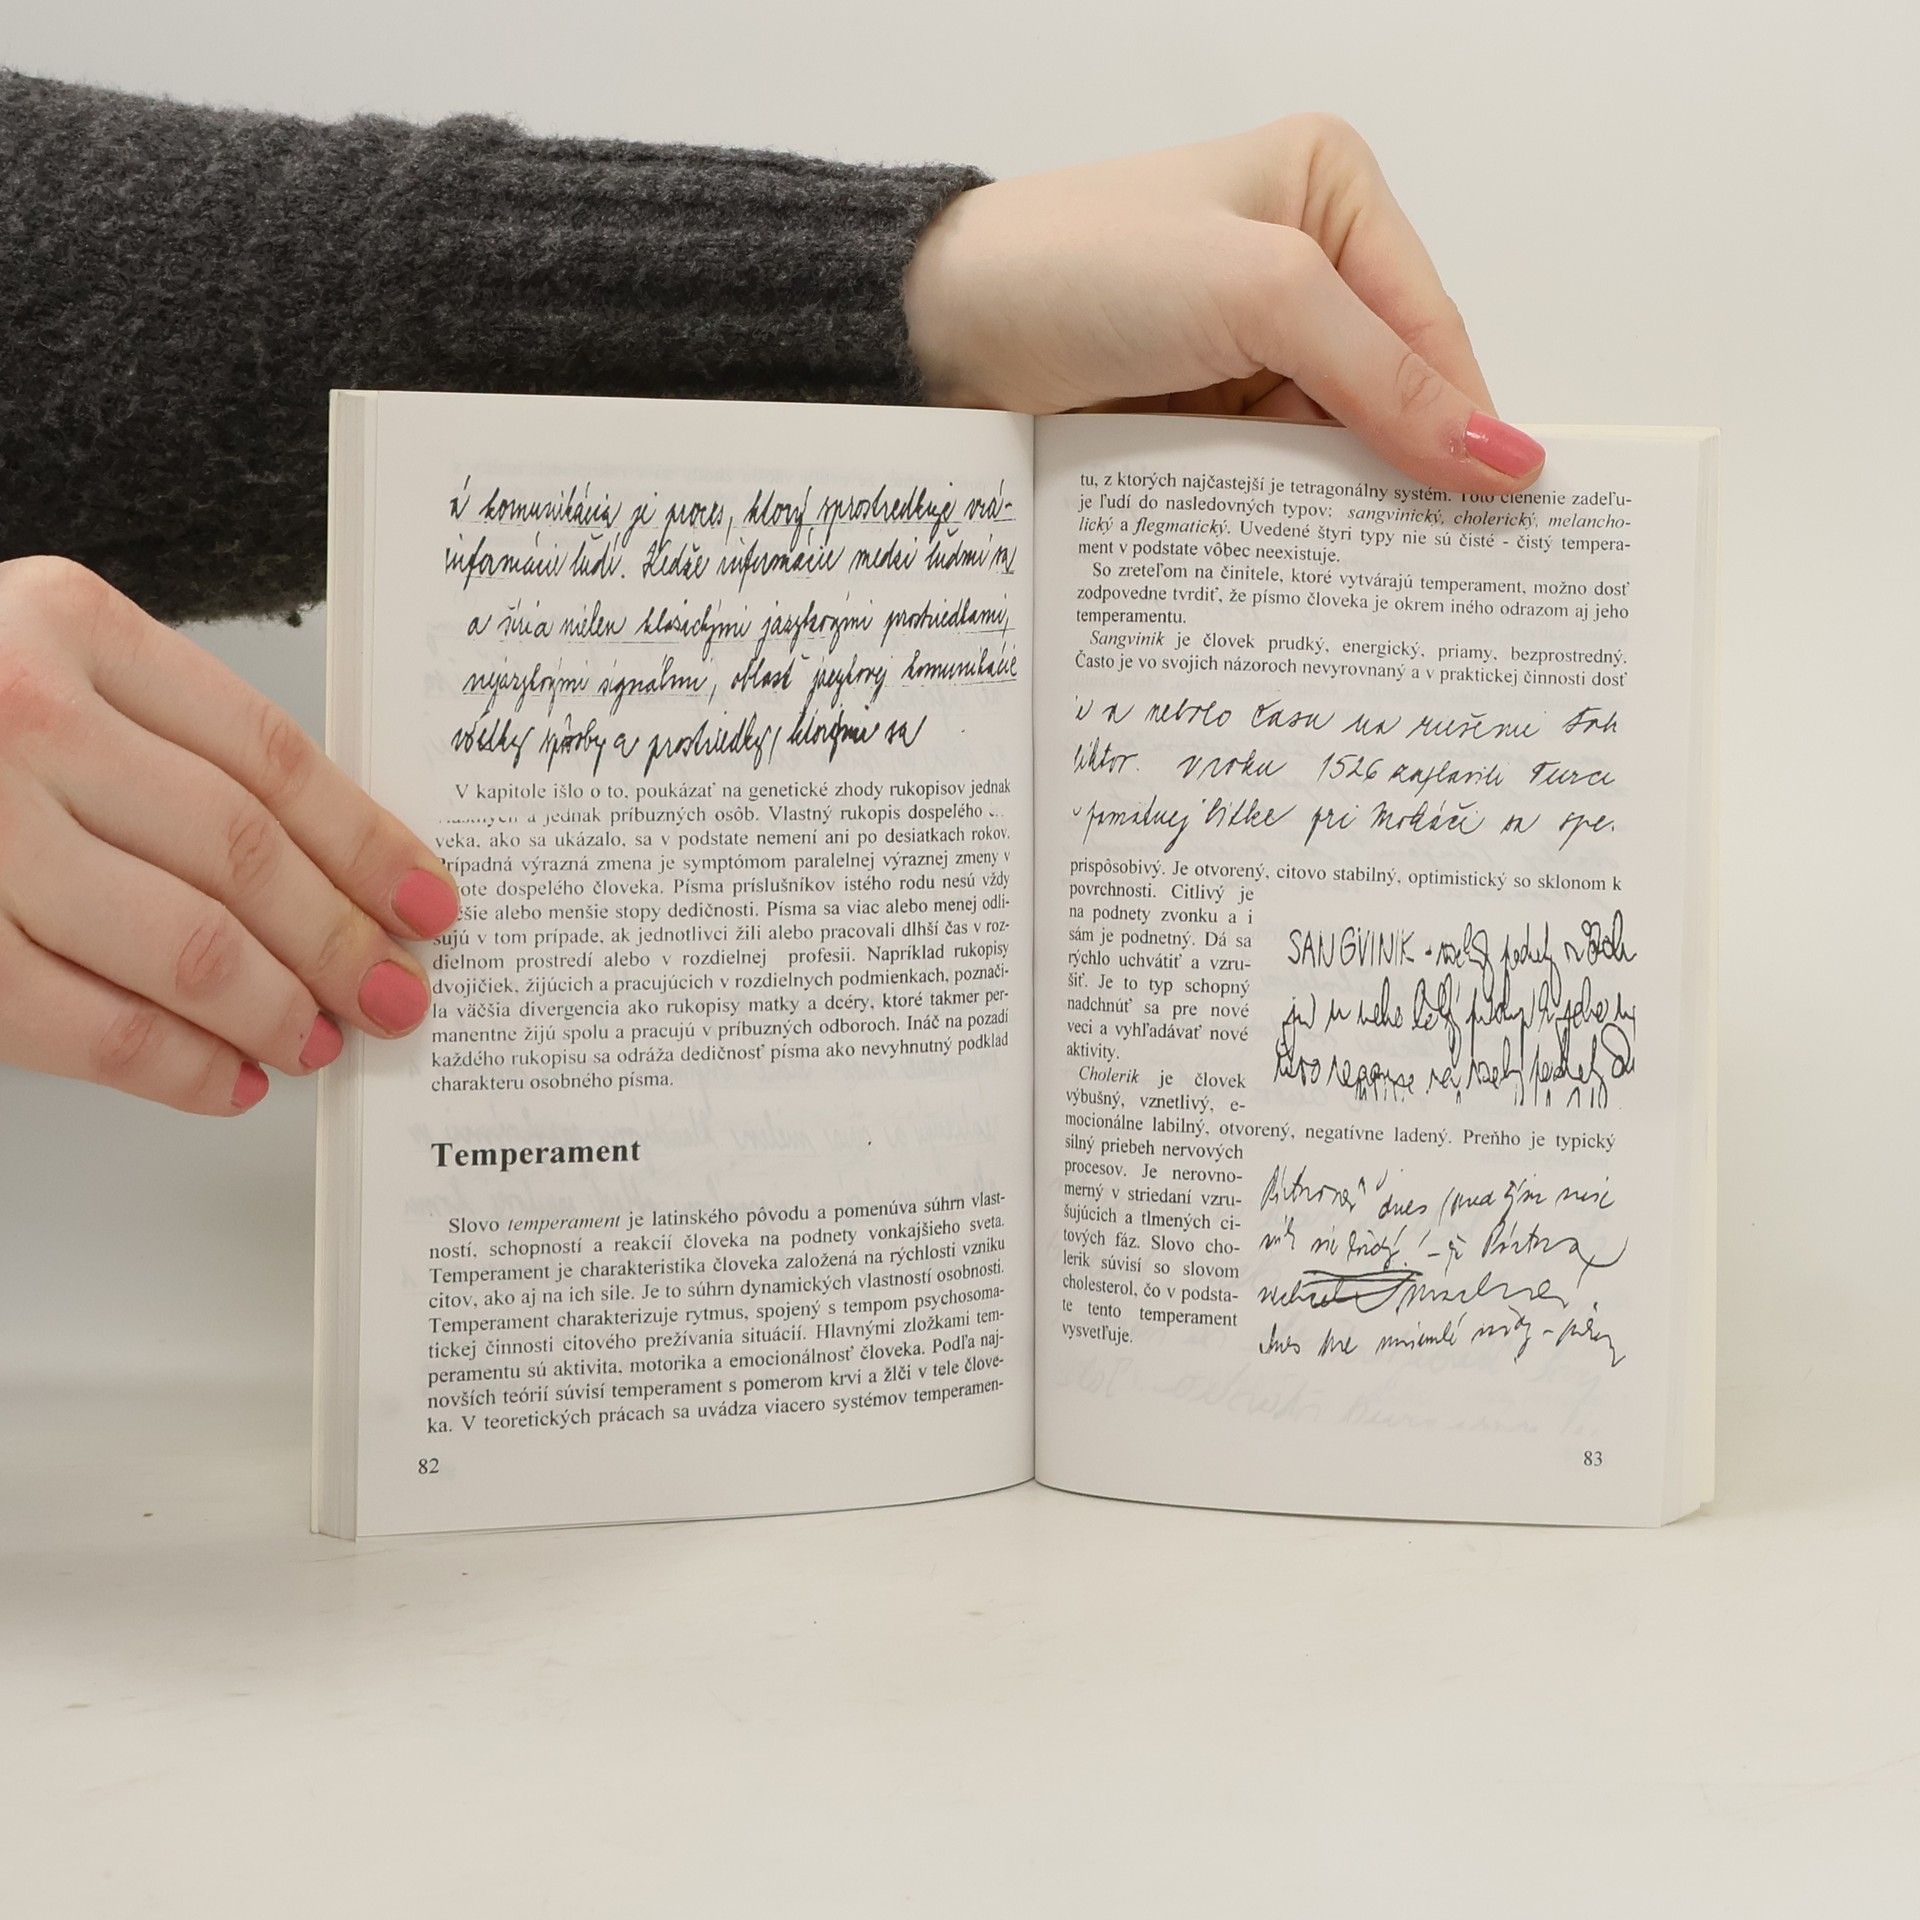 komunikácia je proces, ktorý sprostredkuje
informácií ľudí. Keďže informácie medzi ľuďmi sa
a šíria nielen klasickými jazykovými prostriedkami,
nejazykovými signálmi, oblasť jazykovej komunikácie
všetky spôsoby a prostriedky, ktorými sa
V kapitole išlo o to, poukázať na genetické zhody rukopisov jednak
a jednak príbuzných osôb. Vlastný rukopis dospelého
veka, ako sa ukázalo, sa v podstate nemení ani po desiatkach rokov.
Prípadná výrazná zmena je symptómom paralelnej výraznej zmeny v
dospelého človeka. Písma príslušníkov istého rodu nesú vždy
alebo menšie stopy dedičnosti. Písma sa viac alebo menej odli-
šujú v tom prípade, ak jednotlivci žili alebo pracovali dlhší čas v roz-
dielnom prostredí alebo v rozdielnej profesii. Napríklad rukopisy
dvojičiek, žijúcich a pracujúcich v rozdielnych podmienkach, poznači-
la väčšia divergencia ako rukopisy matky a dcéry, ktoré takmer per-
manentne žijú spolu a pracujú v príbuzných odboroch. Ináč na pozadí
každého rukopisu sa odráža dedičnosť písma ako nevyhnutný podklad
charakteru osobného písma.
Temperament
Slovo temperament je latinského pôvodu a pomenúva súhrn vlast-
ností, schopností a reakcií človeka na podnety vonkajšieho sveta.
Temperament je charakteristika človeka založená na rýchlosti vzniku
citov, ako aj na ich sile. Je to súhrn dynamických vlastností osobnosti.
Temperament charakterizuje rytmus, spojený s tempom psychosoma-
tickej činnosti citového prežívania situácií. Hlavnými zložkami tem-
peramentu sú aktivita, motorika a emocionálnosť človeka. Podľa naj-
novších teórií súvisí temperament s pomerom krvi a žlči v tele člove-
ka. V teoretických prácach sa uvádza viacero systémov temperamen-
82
tu, z ktorých najčastejší je tetragonálny systém. Toto členenie zadeľu-
je ľudí do nasledovných typov: sangvinický, cholerický, melancho-
lický a flegmatický. Uvedené štyri typy nie sú čisté - čistý tempera-
ment v podstate vôbec neexistuje.
So zreteľom na činitele, ktoré vytvárajú temperament, možno dosť
zodpovedne tvrdiť, že písmo človeka je okrem iného odrazom aj jeho
temperamentu.
Sangvinik je človek prudký, energický, priamy, bezprostredný.
Často je vo svojich názoroch nevyrovnaný a v praktickej činnosti dosť
a nebolo času na rušenie
v roku 1526 zaplavili Turci
pamätnej bitke pri Moháči sa
prispôsobivý. Je otvorený, citovo stabilný, optimistický so sklonom k
povrchnosti. Citlivý je
na podnety zvonku a i
sám je podnetný. Dá sa
rýchlo uchvátiť a vzru-
šiť. Je to typ schopný
nadchnúť sa pre nové
veci a vyhľadávať nové
aktivity.
SANGVINIK -
Cholerik je človek
výbušný, vznetlivý, e-
mocionálne labilný, otvorený, negatívne ladený. Preňho je typický
silný priebeh nervových
procesov. Je nerovno-
merný v striedaní vzru-
šujúcich a tlmených ci-
tových fáz. Slovo cho-
lerik súvisí so slovom
cholesterol, čo v podsta-
te tento temperament
vysvetľuje.
dnes
83